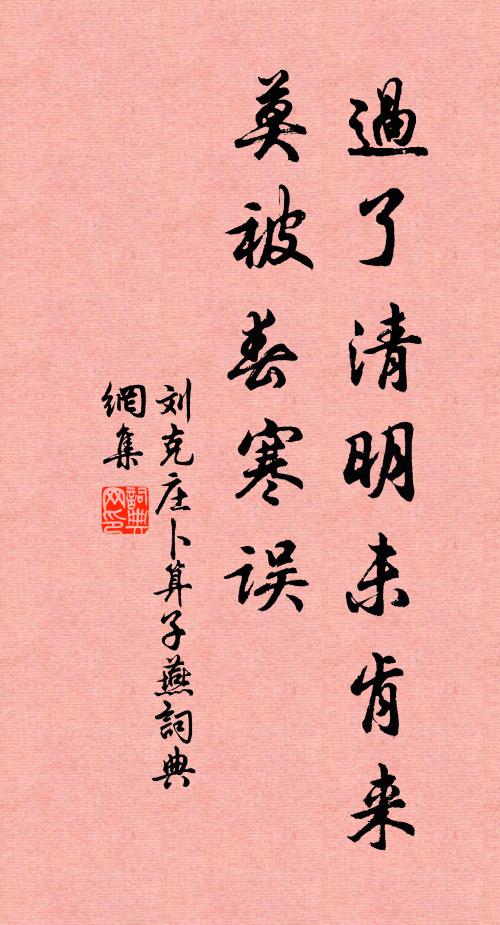 過了清明未肯来
莫被春寒误
刘克庄卜算子燕詞典
網集
詞典
网印